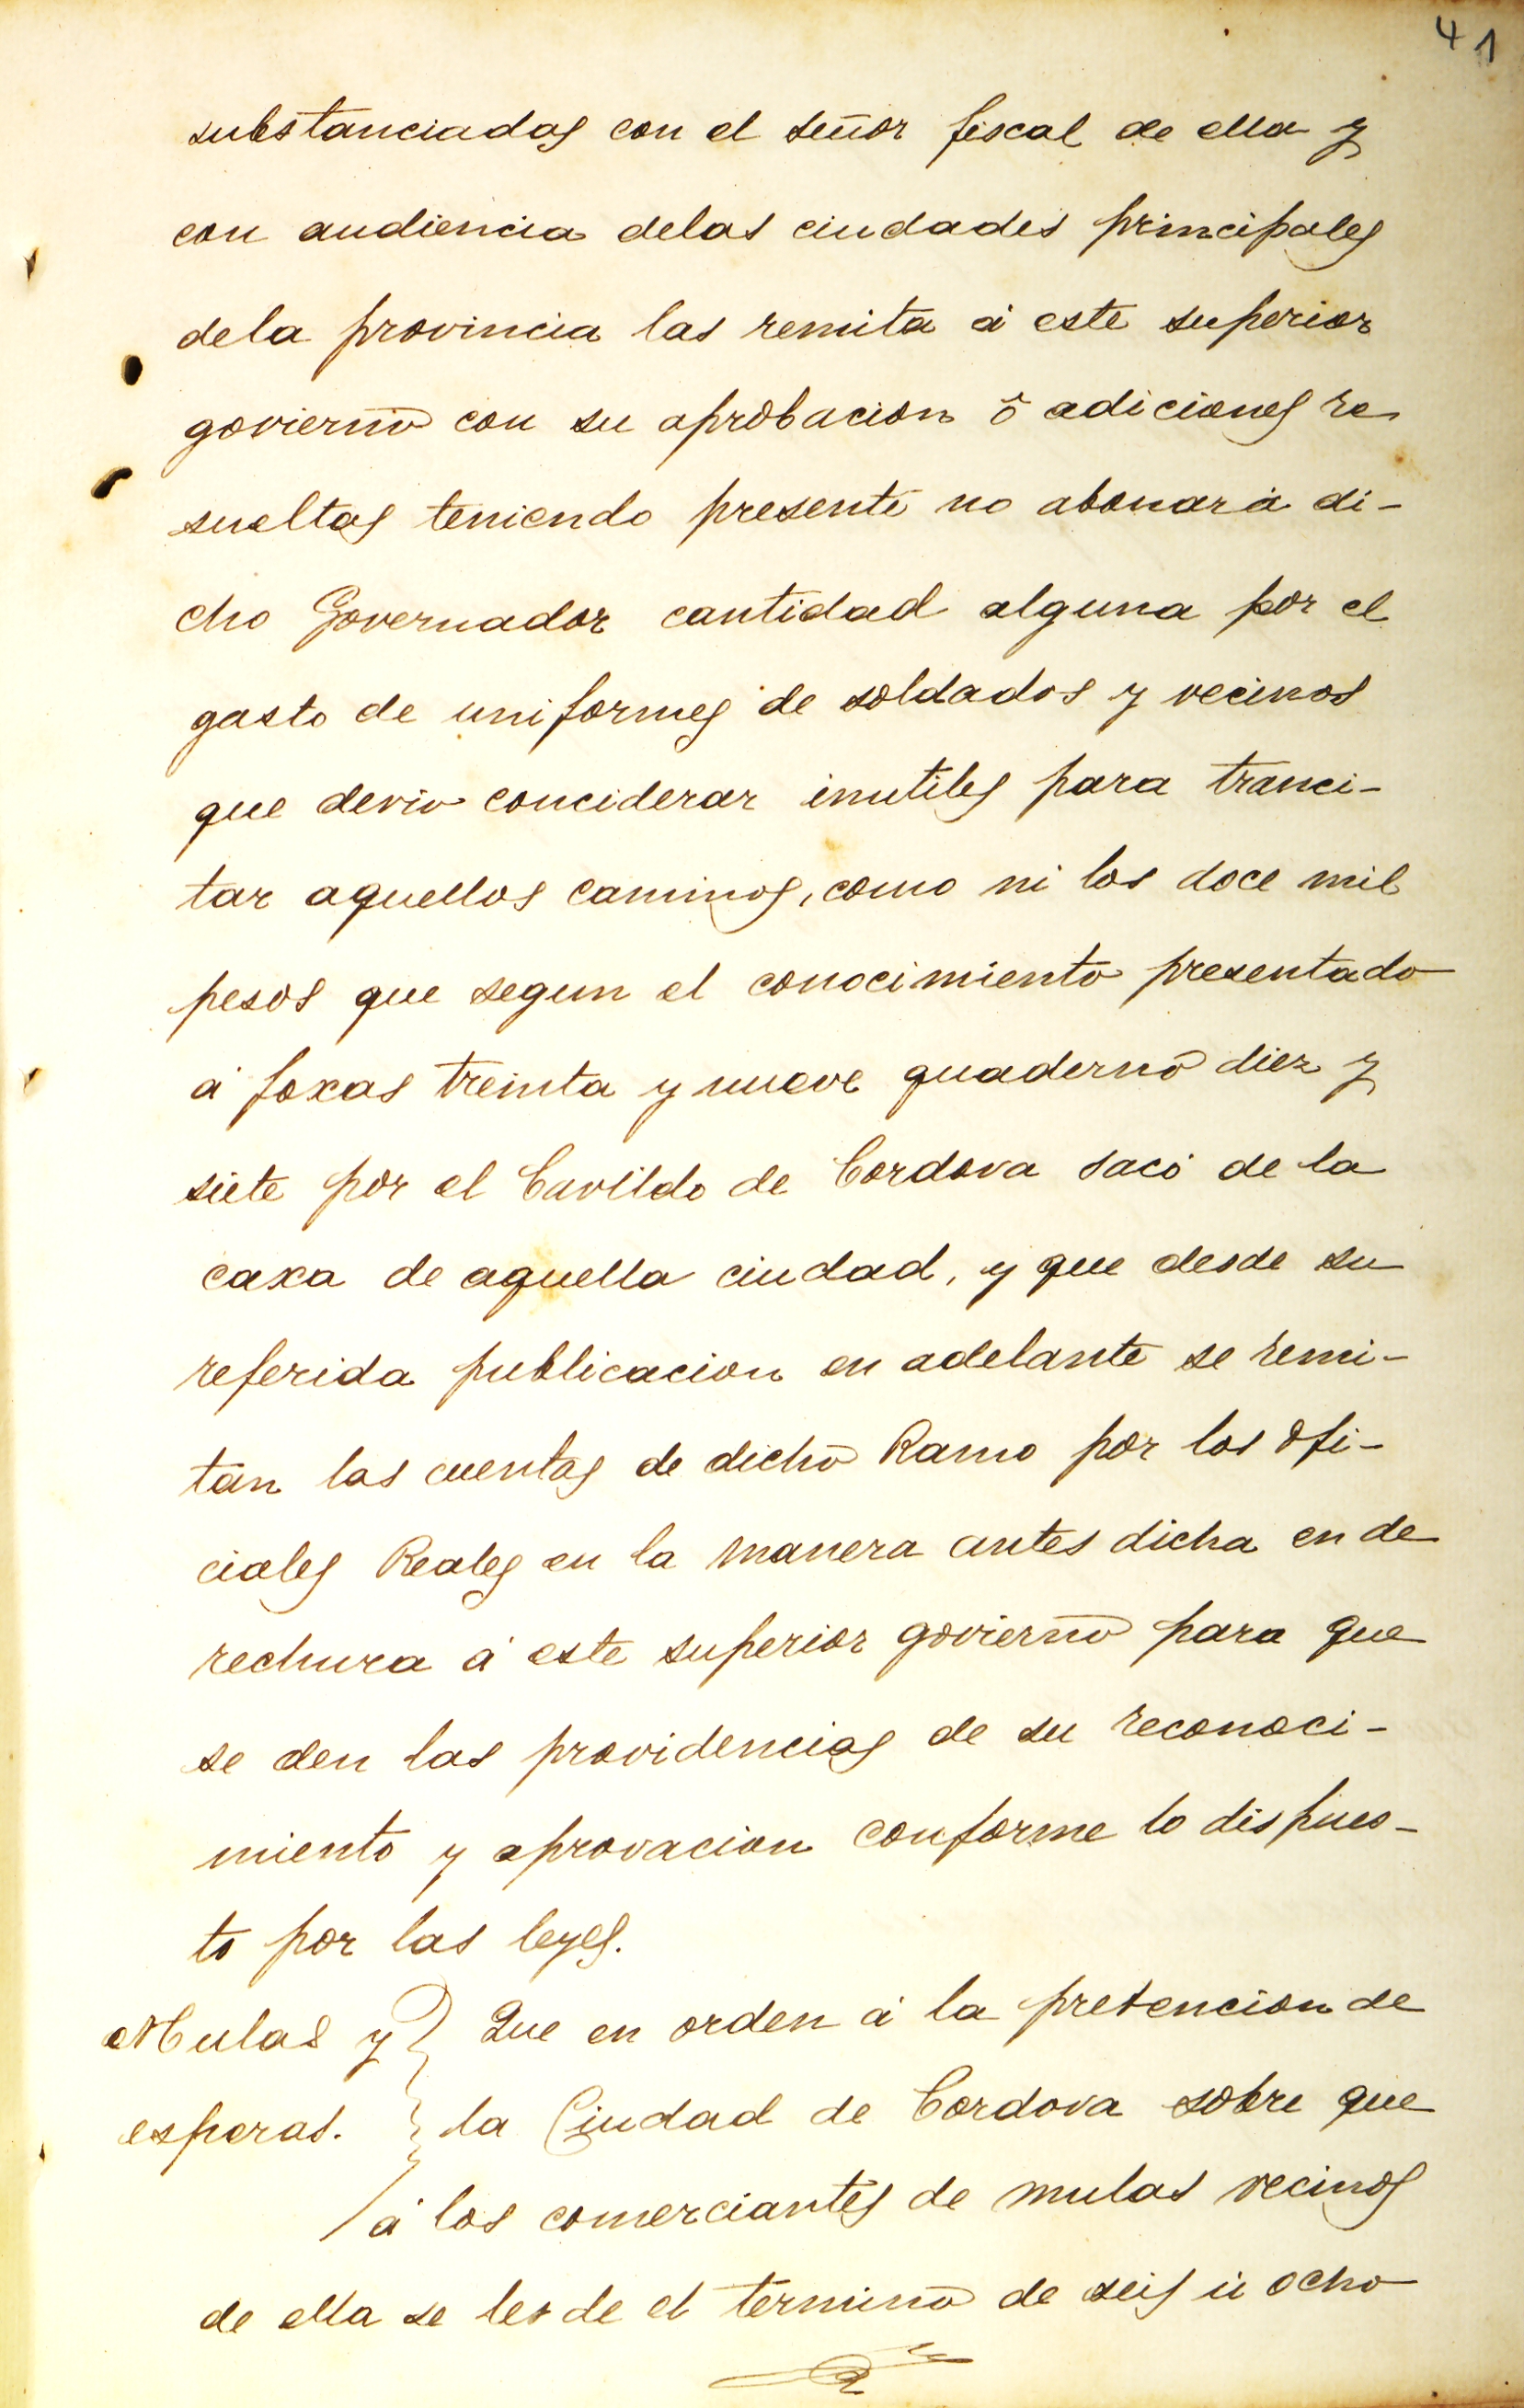 41
substanciadas con el señor fiscal de ella y
con audiencia delas ciudades principales
dela provincia las remita á este superior
govierno con su aprobacion ô adiciones re
sueltas teniendo presente no abonará di-
cho Governador cantidad alguna por el
gasto de uniformes de soldados y vecinos
que devio conciderar inutiles para tranci-
tar aquellos caminos, como ni los doce mil
pesos que segun el conocimiento presentado
á foxas treinta y nueve quaderno diez y
siete por el Cavildo de Cordova sacó de la
caxa de aquella ciudad, y que desde su
referida publicacion en adelante se remi-
tan las cuentas de dicho Ramo por los ofi-
ciales Reales en la manera antes dicha en de
rechura á este superior govierno para que
se den las providencias de su reconoci-
miento y aprovacion conforme lo dispues-
to por las leyes.
Mulas y Que en orden á la pretencion de
esperas. la Ciudad de Cordova sobre que
á los comerciantes de mulas vecinos
de ella se les de el termino de seis ú ocho